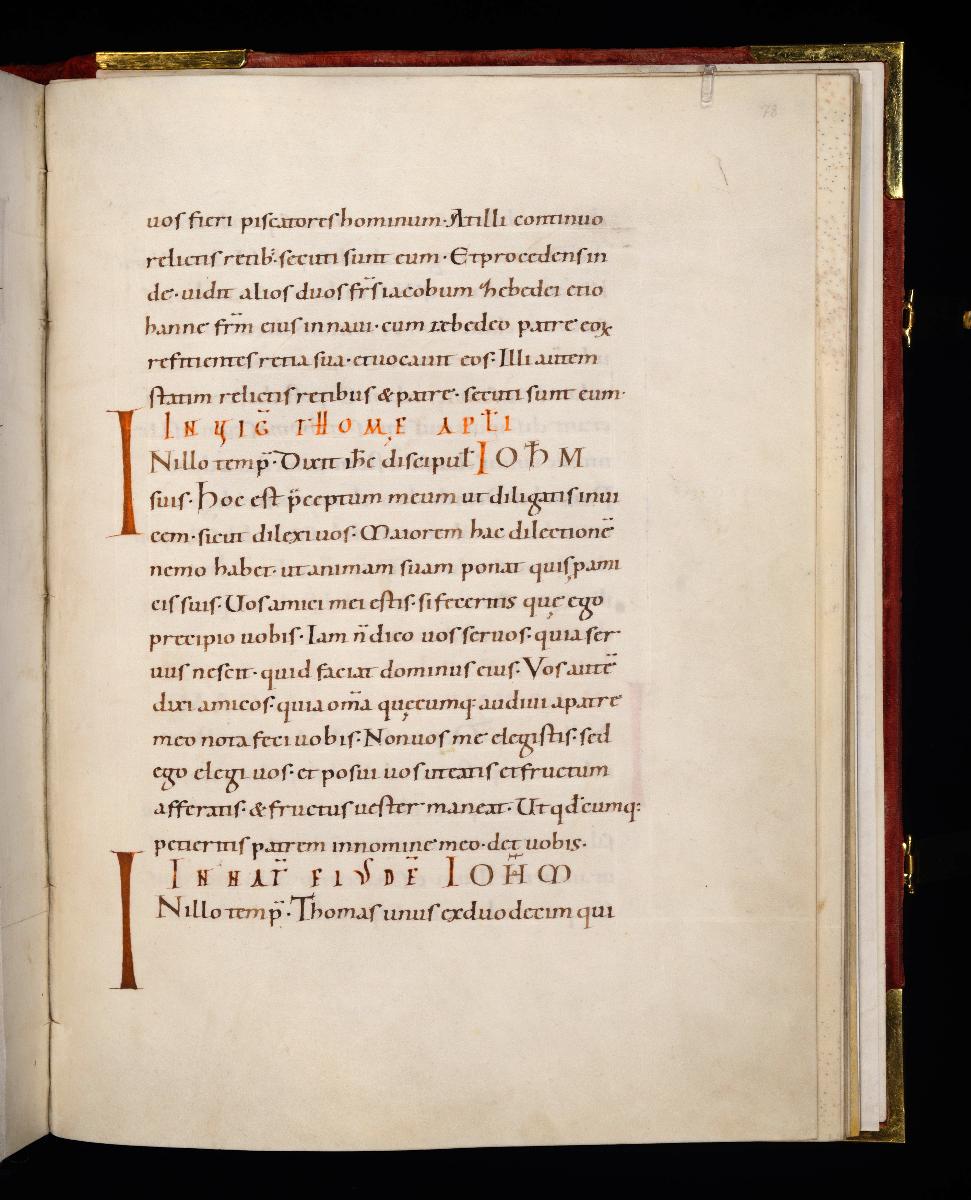 78
uos fieri piscatores hominum· At illi continuo
relictis retib;· secuti sunt eum· Et procedens in
de· uidit alios duos fr̄s iacobum zebedei et io
hanne fr̄m eius in naui· cum zebedeo patre eoꝝ
reficientes retia sua· et uocauit eos· Illi autem
statim relictis retibus & patre· secuti sunt eum·
IN UIG̅ THOME APL̅I
IN illo temp̅· Dixit ih̅c discipul̅ IOH̅M
suis· Hoc est p̅ceptum meum ut diligatis inui
cem· sicut dilexi uos· Maiorem hac dilectione̅
nemo habet· ut animam suam ponat quis p ami
cis suis· Uos amici mei estis· si feceritis quę ego
precipio uobis· Iam n̅ dico uos seruos· quia ser
uus nescit· quid faciat dominus eius· Vos aute̅
dixi amicos· quia om̅a quęcumq· audiui a patre
meo nota feci uobis· Non uos me elegistis· sed
ego elegi uos· et posui uos ut eatis et fructum
afferatis· & fructus uester maneat· Ut qd̅cumq:
petieritis patrem in nomine meo· det uobis·
IN NAT̅ EIUSDE̅ IOH̅M
IN illo temp̅· Thomas unus ex duodecim qui